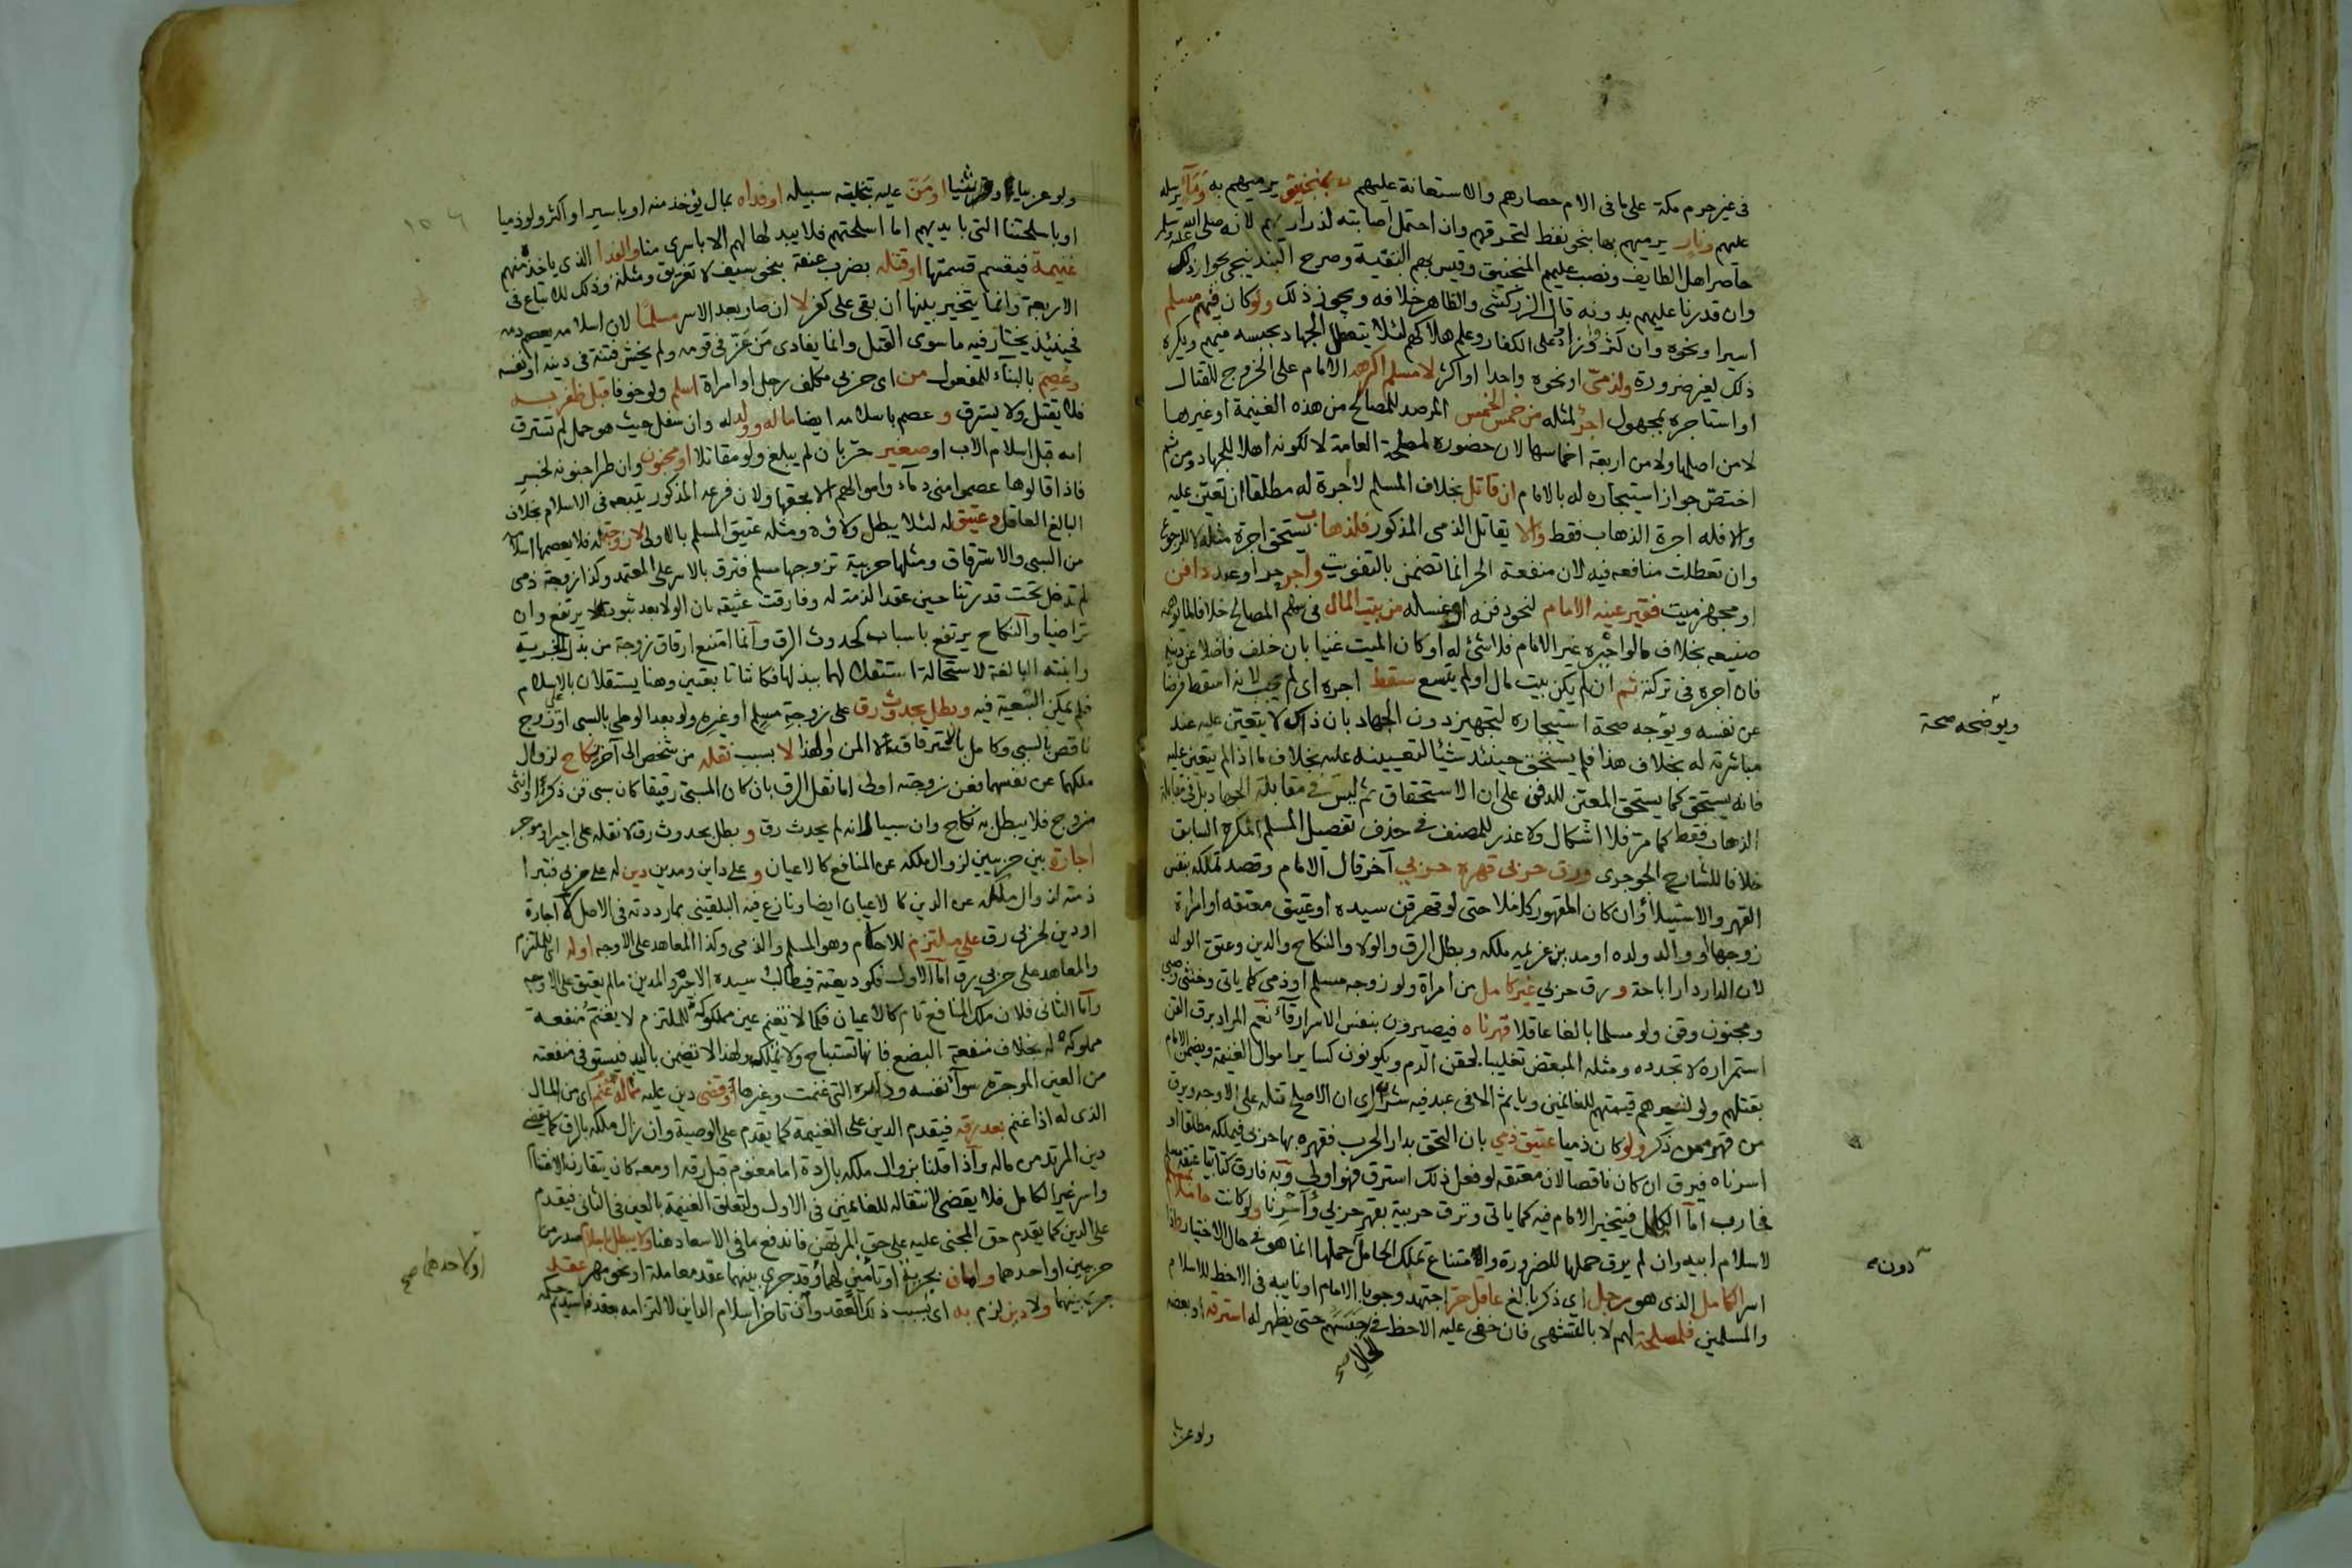 في غير حرم مكة على ما في الام حصارهم والاستعانة عليهم بمنجنيق يرميهم به وماء يرسله
عليهم ونار يرميهم بها بنحو نفط لتحرقهم وان احتمل اصابته لذراريهم لانه صلى الله عليه وسلم
حاصر اهل الطايف ونصب عليهم المنجنيق وقيس بهم البقية وصرح البندنيجي بجواز ذلك
وان قدرنا عليهم بدونه قال الزركشي والظاهر خلافه ويجوز ذلك ولو كان فيهم مسلم
اسيرا ونحوه وان كثر وزاد على الكفار وعلم هلاكهم لئلا يتعطل الجهاد بحبسه فيهم ويكره
ذلك لغير ضرورة ولذمي او نحوه واحدا او اكثر لا مسلم اكرهه الامام على الخروج للقتال
او استاجره بمجهول اجر لمثله من خمس الخمس المرصد للمصالح من هذه الغنيمة او غيرها
لا من اصلها ولا من اربعة اخماسها لان حضوره لمصلحة العامة لا لكونه اهلا للجهاد ومن ثم
اختص جواز استيجاره له بالامام ان قاتل بخلاف المسلم لا اجرة له مطلقا ان تعين عليه
والا فله اجرة الذهاب فقط والا يقاتل الذمي المذكور فلذهاب يستحق اجرة مثله لا للرجوع
وان تعطلت منافعه فيه لان منفعة الحر انما تضمن بالتفويت واجر حر او عبد دافن
او مجهز ميت فقير عينه الامام لنحو دفنه او غسله من بيت المال في سهم المصالح خلافا لما يوهمه
صنيعه بخلاف ما لو اجبره غير الامام فلا شئ له او كان الميت غنيا بان خلف فاضلا عن دينه
فان اجره في تركته ثم ان لم يكن بيت مال او لم يتسع سقط اجره اي لم يجب لانه اسقط فرضا
عن نفسه ويوجه صحة استيجاره لتجهيز دون الجهاد بان ذاك لا يتعين عليه عند
مباشرته له بخلاف هذا فلم يستحق حينئذ شيئا لتعيينه عليه بخلاف ما اذا لم يتعين عليه
فانه يستحق كما يستحق المعين للدفن على ان الاستحقاق ثم ليس في مقابلة الجهاد بل في مقابلة
الذهاب فقط كما مر فلا اشكال ولا عذر للمصنف في حذف تفصيل المسلم المكره السابق
خلافا للشارح الجوجري ورق حربي قهره حربي آخر قال الامام وقصد تملكه بنفس
القهر والاستيلاء وان كان المقهور كاملا حتى لو قهر قن سيده او عتيق معتقه او امراة
زوجها او والد ولده او مدين غريمه ملكه وبطل الرق والولا والنكاح والدين وعتق الولد
لان الدار دار اباحة ورق حربي غير كامل من امراة ولو زوجه مسلم او ذمي كما ياتي وخنثى وصبي
ومجنون وقن ولو مسلما بالغا عاقلا قهرناه فيصيرون بنفس الاسر ارقاء نعم المراد برق القن
استمراره لا تجدده ومثله المبعض تغليبا لحقن الدم ويكونون كساير اموال الغنيمة ويضمن الامام
بقتلهم ولو لشرهم قيمتهم للغانمين وياثم الا في عبد فيه شر راى ان الاصلح قتله على الاوجه ويرق
من قهر ممن ذكر ولو كان ذميا عتيق ذمي بان التحق بدار الحرب فقهره بها حربي فيملكه مطلقا او
اسرناه فيرق ان كان ناقصا لان معتقه لو فعل ذلك استرق فهو اولى وبه فارق كتابيا عتقه مسلم
فحارب اما الكامل فيتخير الامام فيه كما ياتي وترق حربية بقهر حربي واسرنا ولو كانت حاملا بمسلم
لاسلام ابيه وان لم يرق حملها للضرورة والامتناع تملك الحامل دون حملها انما هو في حال الاختيار واذا
اسر الكامل الذي هو رجل اي ذكر بالغ عاقل حر اجتهد وجوبا الامام او نايبه في الاحظ للاسلام
والمسلمين فلمصلحة لهم لا بالتشهي فان خفي عليه الاحظ في الحال حبسهم حتى يظهر له استرقه او بعضه
ويوضحه صحة
دون
الحال صح
ولو عربيا
ولو عربيا او قرشيا او من عليه بتخلية سبيله او فداه بمال يؤخذ منه او باسير او اكثر ولو ذميا
او باسلحتنا التي بايديهم اما اسلحتهم فلا يبدلها لهم الا باسرى منا والفدا الذي ياخذه منهم
غنيمة فيقسم قسمتها او قتله بضرب عنقه بنحو سيف لا تغريق ومثلة وذلك للاتباع في
الاربعة وانما يتخير بينها ان بقي على كفره لا ان صار بعد الاسر مسلما لان اسلامه يعصم دمه
فحينئذ يختار فيه ما سوى القتل وانما يفادى من عز في قومه ولم يخش فتنة في دينه او نفسه
وعصم بالبناء للمفعول من اي حربي مكلف رجل او امراة اسلم ولو خوفا قبل ظفر به
فلا يقتل ولا يسترق وعصم باسلامه ايضا ماله وولده له وان سفل حيث هو حمل لم تسترق
امه قبل اسلام الاب او صغير حر بان لم يبلغ ولو مقاتلا او مجنون وان طرا جنونه لخبر
فاذا قالوها عصموا مني دماءهم واموالهم الا بحقها ولان فرعه المذكور يتبعه في الاسلام بخلاف
البالغ العاقل وعتيق له لئلا يبطل ولاؤه ومثله عتيق المسلم بالاولى لا زوجة له فلا يعصمها اسلامه
من السبي والاسترقاق ومثلها حربية تزوجها مسلم فترق بالاسر على المعتمد وكذا زوجة ذمي
لم تدخل تحت قدرتنا حين عقد الذمة له وفارقت عتيقه بان الولا بعد ثبوته لا يرتفع وان
تراضيا والنكاح يرتفع باسباب كحدوث الرق وانما امتنع ارقاق زوجة من بذل الجزية
وابنته البالغة لاستحالة استقلالهما ببذلها فكانتا تابعتين وهنا يستقلان بالاسلام
فلم يمكن التبعية فيه وبطل بحدوث رق على زوجة مسلم او غيره ولو بعد الوطي بالسبي او زوج
ناقص بالسبي وكامل بالاسترقاق لا المن والفدا لا بسبب نقله من شخص الى آخر نكاح لزوال
ملكهما عن نفسهما فعن زوجته اولى اما نقل الرق بان كان المسبي رقيقا كان سبي قن ذكرا او انثى
مزوج فلا يبطل به نكاح وان سبيا لانه لم يحدث رق وبطل بحدوث رق لا نقله على اجير او موجر
اجارة بين حربيين لزوال ملكه عن المنافع كالاعيان وعلى داين ومدين دين له على حربي فتبرا
ذمته لزوال ملكه عن الدين كالاعيان ايضا ونازع فيه البلقيني بما رددته في الاصل لا اجارة
او دين لحربي رق على ملتزم للاحكام وهو المسلم والذمي وكذا المعاهد على الاوجه او له اي للملتزم
والمعاهد على حربي يرق اما الاول فكوديعته فيطالب سيده الاجير والمدين ما لم يعتق على الاوجه
واما الثاني فلان ملك المنافع تام كالاعيان فكما لا تغنم عين مملوكة للملتزم لا يغنم منفعة
مملوكة له بخلاف منفعة البضع فانها تستباح ولا تملك ولهذا لا تضمن باليد فيستوفي منفعته
من العين الموجرة سواء نفسه وداره التي غنمت وغيرها وقضي دين عليه مما له غنم اي من المال
الذي له اذا غنم بعد رقه فيقدم الدين على الغنيمة كما يقدم على الوصية وان زال ملكه بالرق كما يقضى
دين المرتد من ماله واذا قلنا بزوال ملكه بالردة اما مغنوم قبل رقه او معه كان يتقارن الاغتنام
واسر غير الكامل فلا يقضى لانتقاله للغانمين في الاول ولتعلق الغنيمة بالعين في الثاني فيقدم
على الدين كما يقدم حق المجني عليه على حق المرتهن فاندفع ما في الاسعاد هنا ولا يبطل باسلام صدر من
حربيين او احدهما وامان بجزية او تامين لهما وقد جرى بينهما عقد معاملة او نحو مهر عقد
جرى بينهما ولا دين لزم به اي بسبب ذلك العقد وان تاخر اسلام الداين لالتزامه بعقد فاستديم حكمه
او لاحدهما صح